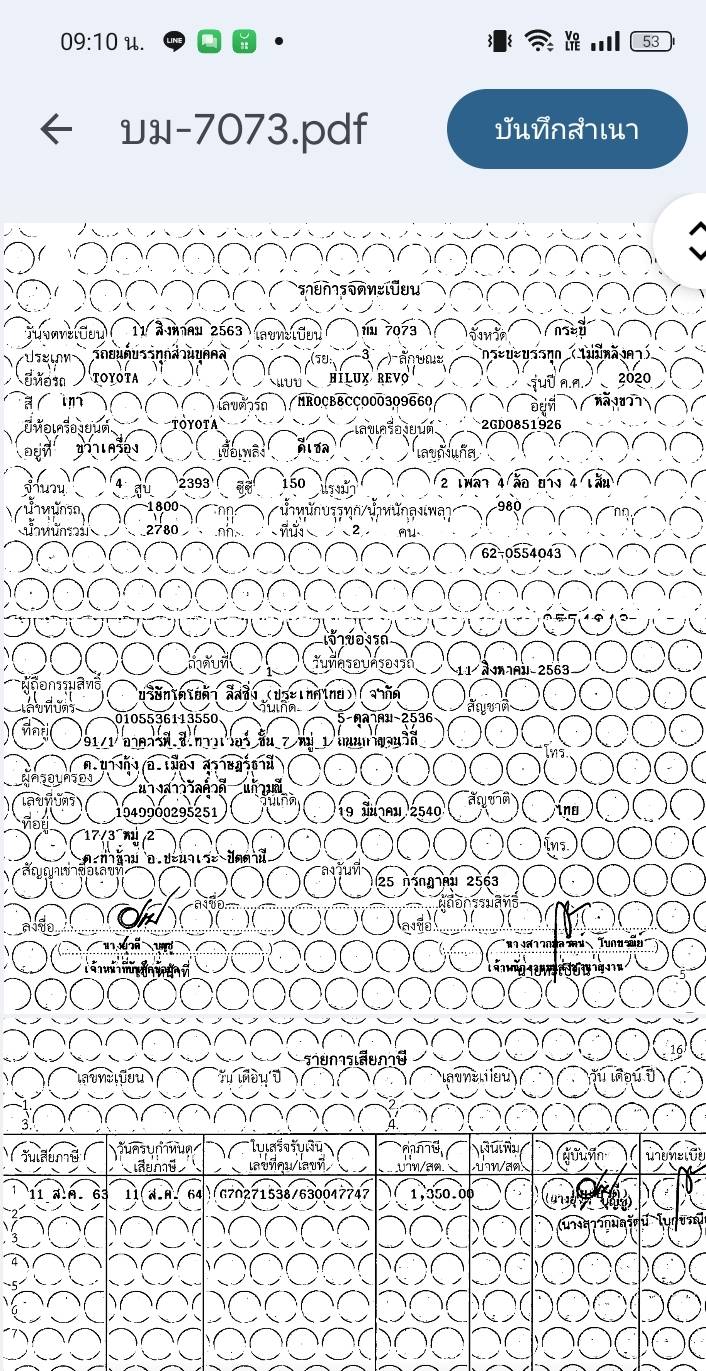 09:10 น. LINE Vo LTE 53
บม-7073.pdf บันทึกสำเนา
รายการจดทะเบียน
วันจดทะเบียน 11 สิงหาคม 2563 เลขทะเบียน บม 7073 จังหวัด กระบี่
ประเภท รถยนต์บรรทุกส่วนบุคคล (รย. 3 ) ลักษณะ กระบะบรรทุก (ไม่มีหลังคา)
ยี่ห้อรถ TOYOTA แบบ HILUX REVO รุ่นปี ค.ศ. 2020
สี เทา เลขตัวรถ MR0CB8CC000309660 อยู่ที่ หลังขวา
ยี่ห้อเครื่องยนต์ TOYOTA เลขเครื่องยนต์ 2GD0851926
อยู่ที่ ขวาเครื่อง เชื้อเพลิง ดีเซล เลขถังแก๊ส
จำนวน 4 สูบ 2393 ซีซี 150 แรงม้า 2 เพลา 4 ล้อ ยาง 4 เส้น
น้ำหนักรถ 1800 กก. น้ำหนักบรรทุก/น้ำหนักลงเพลา 980 กก.
น้ำหนักรวม 2780 กก. ที่นั่ง 2 คน
62-0554043
เจ้าของรถ
ลำดับที่ 1 วันที่ครอบครองรถ 11 สิงหาคม 2563
ผู้ถือกรรมสิทธิ์ บริษัทโตโยต้า ลีสซิ่ง (ประเทศไทย) จำกัด
เลขที่บัตร 0105536113550 วันเกิด 5 ตุลาคม 2536 สัญชาติ
ที่อยู่ 91/1 อาคารพี.ซี.ทาวเวอร์ ชั้น 7 หมู่ 1 ถนนกาญจนวิถี
ต.บางกุ้ง อ.เมือง สุราษฎร์ธานี โทร.
ผู้ครอบครอง นางสาววัลคุ์วดี แก้วมณี
เลขที่บัตร 1949900295251 วันเกิด 19 มีนาคม 2540 สัญชาติ ไทย
ที่อยู่ 17/3 หมู่ 2
ต.ท่าข้าม อ.ปะนาเระ ปัตตานี โทร.
สัญญาเช่าซื้อเลขที่ ลงวันที่ 25 กรกฎาคม 2563
ลงชื่อ ผู้ถือกรรมสิทธิ์
ลงชื่อ ลงชื่อ
เจ้าหน้าที่บันทึกข้อมูล
5
16
รายการเสียภาษี
เลขทะเบียน วัน เดือน ปี เลขทะเบียน วัน เดือน ปี
1. 2.
3. 4.
วันเสียภาษี วันครบกำหนดเสียภาษี ใบเสร็จรับเงิน เลขที่คุม/เลขที่ ค่าภาษี บาท/สต. เงินเพิ่ม บาท/สต. ผู้บันทึก นายทะเบีย
1 11 ส.ค. 63 11 ส.ค. 64 G70271538/630047747 1,350.00
2
3
4
5
6
7